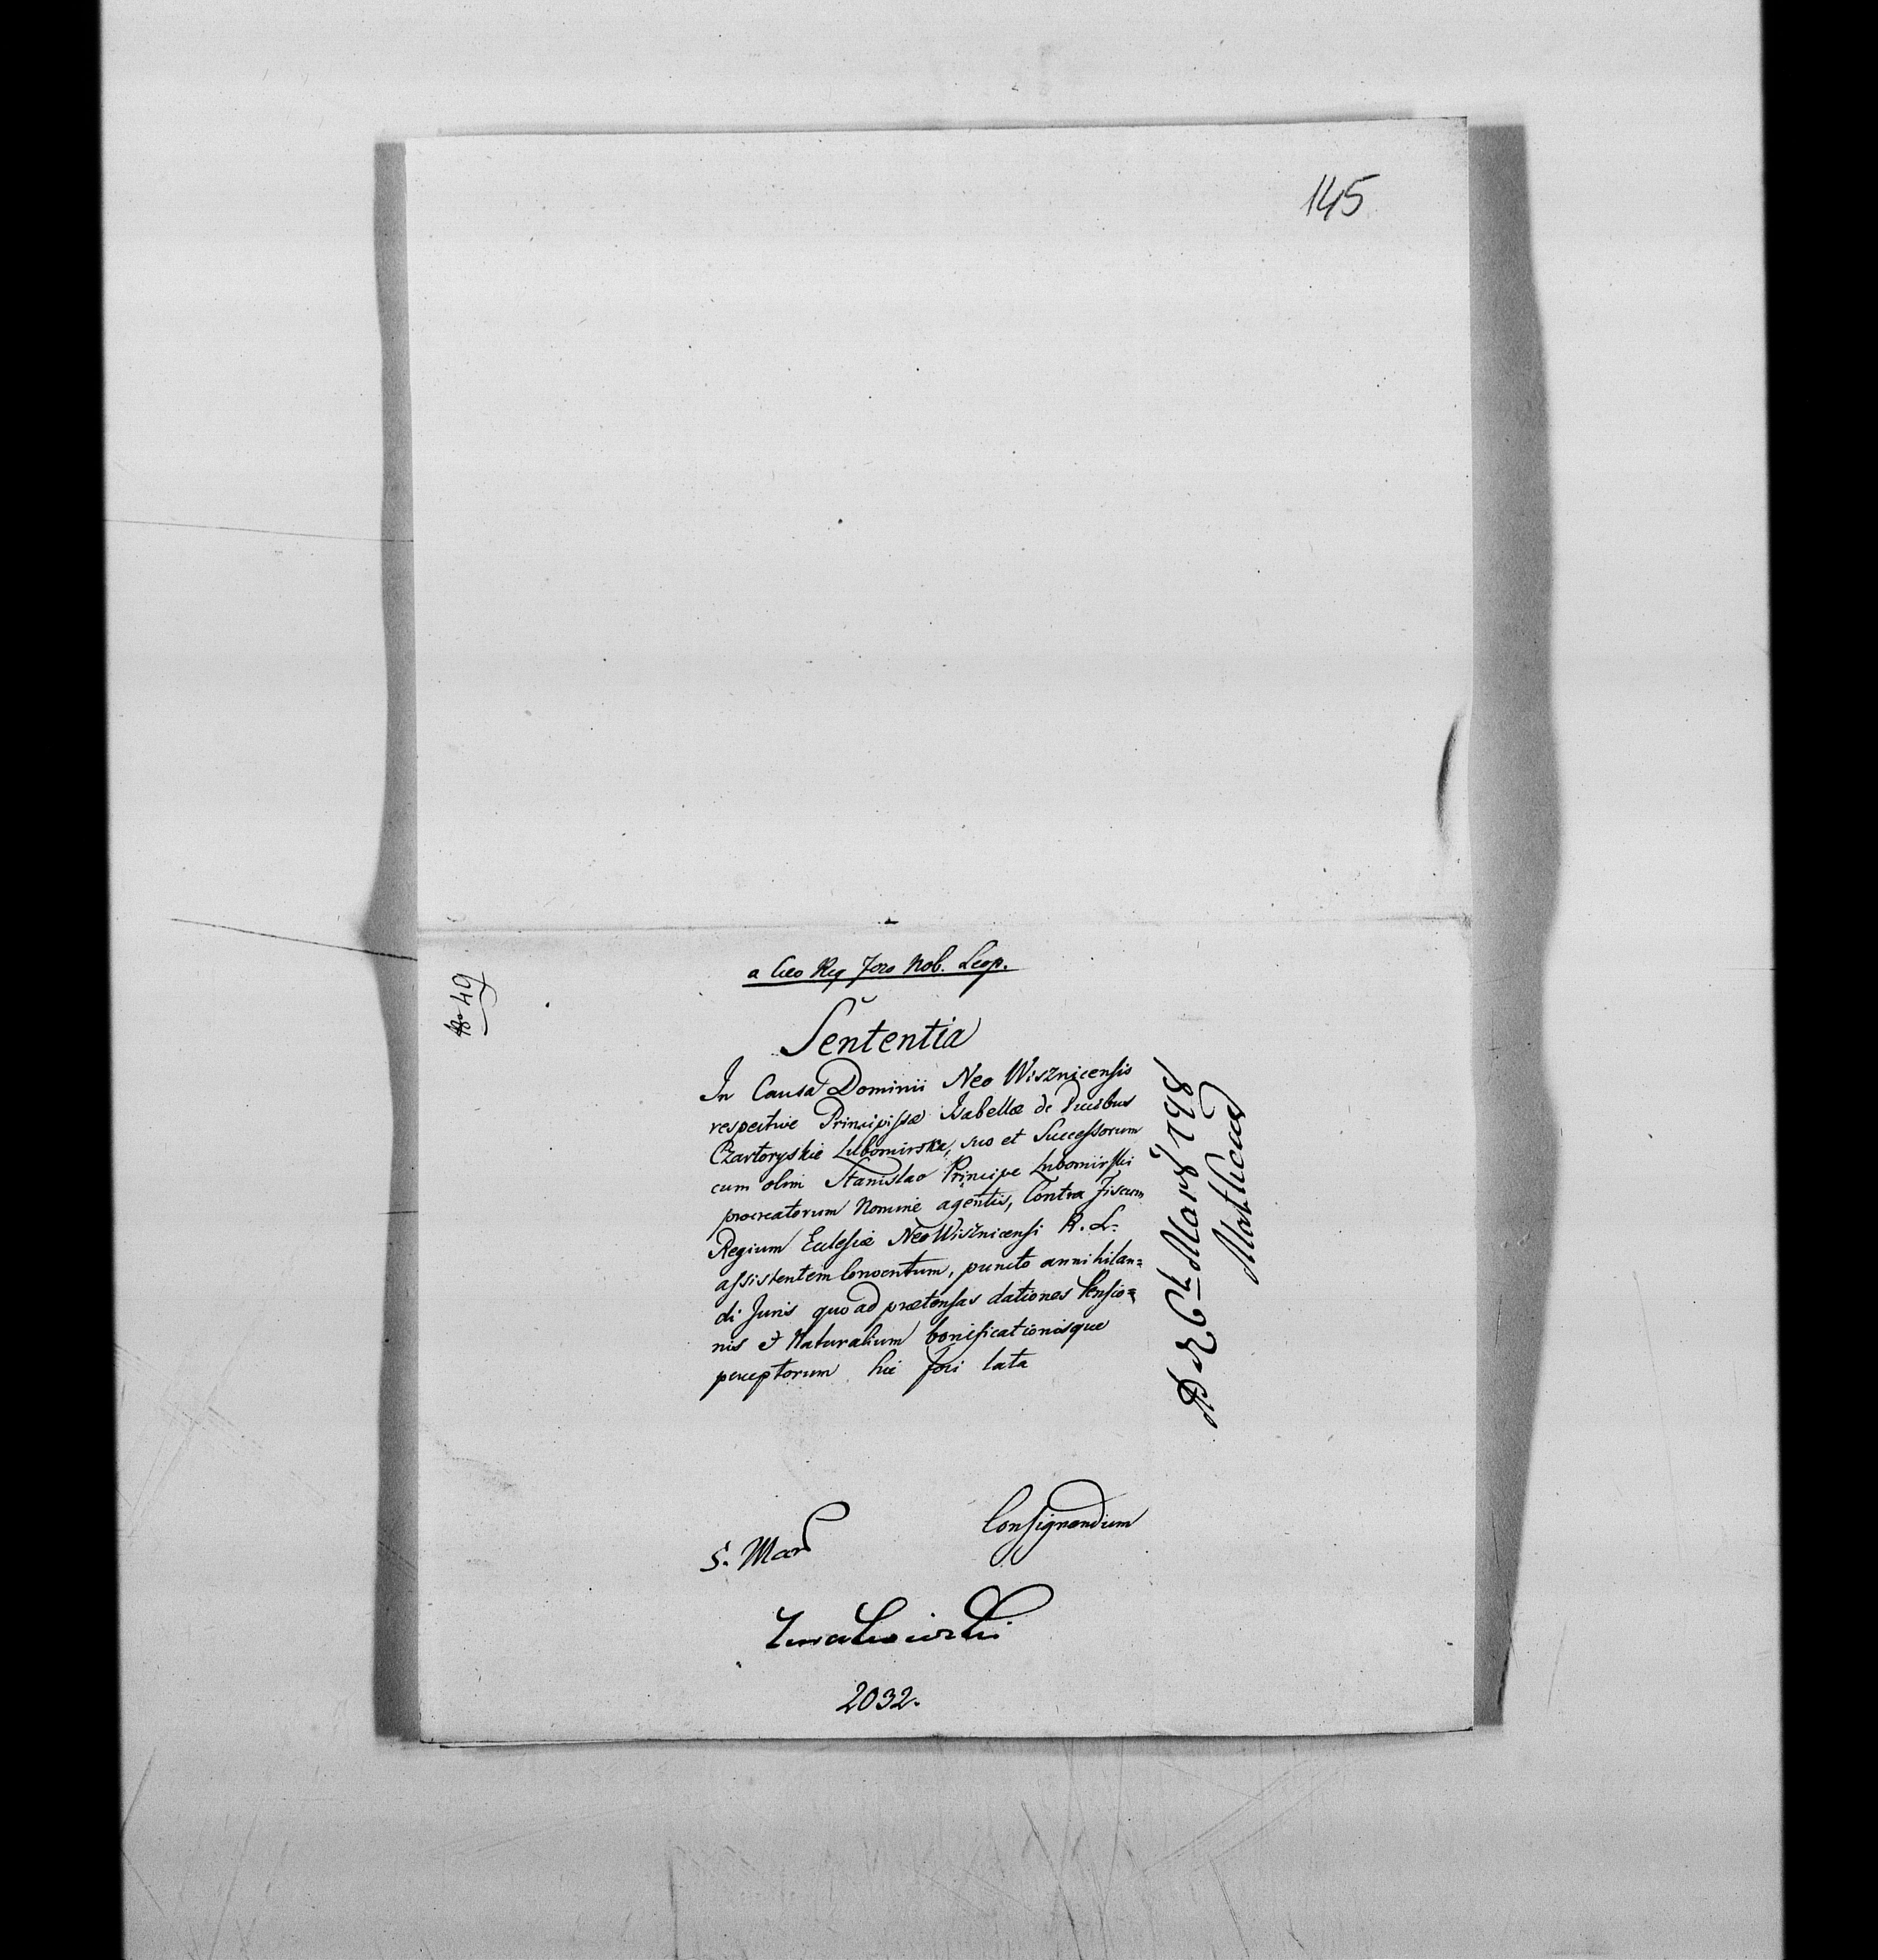 145
No 49
a Cæo Reg Foro Nob. Leop.
Sententia
In Causa Dominii Neo Wisznicensis
respective Principissæ Isabellæ de Ducibus
Czartoryskie Lubomirska, suo et Successorum
cum olim Stanislao Principe Lubomirski
procreatorum Nomine agentis, Contra Fiscum
Regium Eclesiæ NeoWisznicensi R. L.
assistentem Conventum, puncto annihilan=
di Juris quo ad prætensas dationes Pensio=
nis et Naturalium bonificationisque
perceptorum hic fori lata
6t Marz 798
5. Mar
Consignandum
2032.